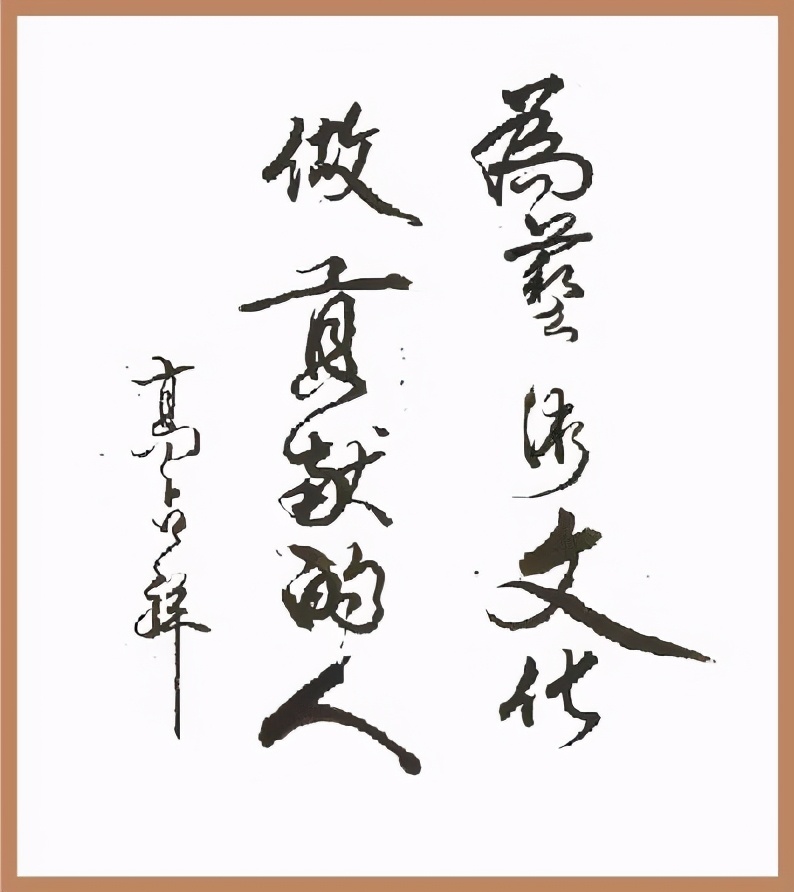 為藝術文化
做貢献的人
高占祥